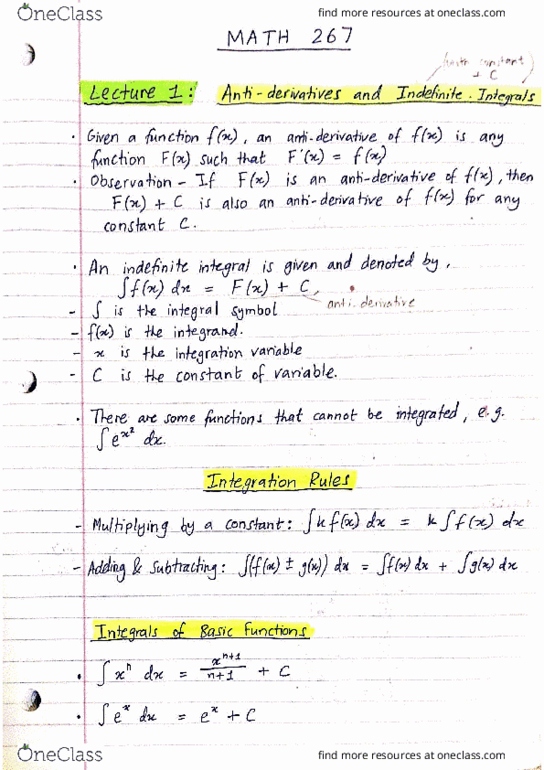 OneClass find more resources at oneclass.com
MATH 267
(with constant + C)
Lecture 1: Anti-derivatives and Indefinite Integrals
· Given a function f(x), an anti-derivative of f(x) is any
function F(x) such that F'(x) = f(x)
· Observation - If F(x) is an anti-derivative of f(x), then
F(x) + C is also an anti-derivative of f(x) for any
constant C.
· An indefinite integral is given and denoted by,
∫f(x) dx = F(x) + C,
anti-derivative
- ∫ is the integral symbol
- f(x) is the integrand.
- x is the integration variable
- C is the constant of variable.
· There are some functions that cannot be integrated, e.g.
∫e^x² dx.
Integration Rules
- Multiplying by a constant: ∫k f(x) dx = k ∫f(x) dx
- Adding & Subtracting: ∫(f(x) ± g(x)) dx = ∫f(x) dx + ∫g(x) dx
Integrals of Basic Functions
· ∫ xⁿ dx = xⁿ⁺¹/n+1 + C
· ∫ eˣ dx = eˣ + C
OneClass find more resources at oneclass.com